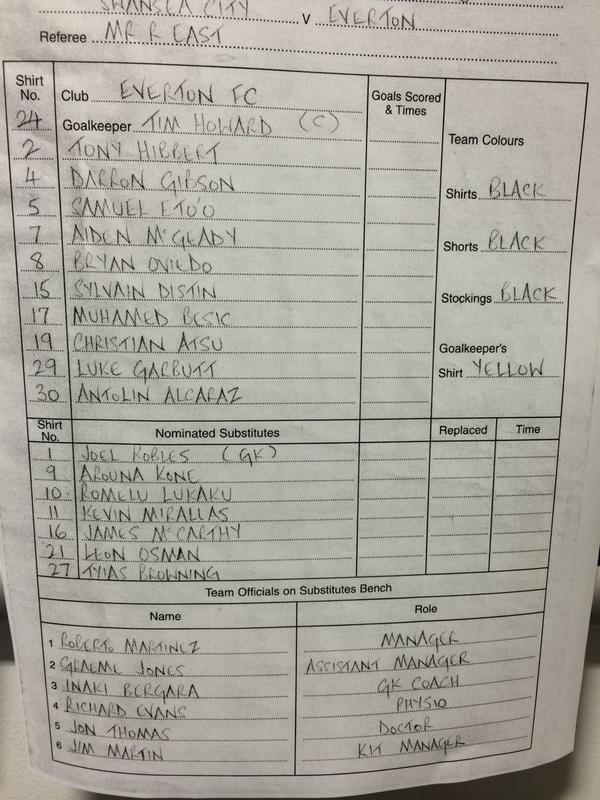 SWANSEA CITY V EVERTON
Referee MR R EAST
Shirt No. Club EVERTON FC Goals Scored & Times
24 Goalkeeper TIM HOWARD (C)
Team Colours
2 TONY HIBBERT
4 DARRON GIBSON
Shirts BLACK
5 SAMUEL ETO'O
7 AIDEN McGEADY
Shorts BLACK
8 BRYAN OVIEDO
15 SYLVAIN DISTIN
Stockings BLACK
17 MUHAMED BESIC
19 CHRISTIAN ATSU
Goalkeeper's
29 LUKE GARBUTT
Shirt YELLOW
30 ANTOLIN ALCARAZ
Shirt No. Nominated Substitutes Replaced Time
1 JOEL ROBLES (GK)
9 AROUNA KONE
10 ROMELU LUKAKU
11 KEVIN MIRALLAS
16 JAMES McCARTHY
21 LEON OSMAN
27 TYIAS BROWNING
Team Officials on Substitutes Bench
Name Role
1 ROBERTO MARTINEZ MANAGER
2 GRAEME JONES ASSISTANT MANAGER
3 INAKI BERGARA GK COACH
4 RICHARD EVANS PHYSIO
5 JON THOMAS DOCTOR
6 JIM MARTIN KIT MANAGER